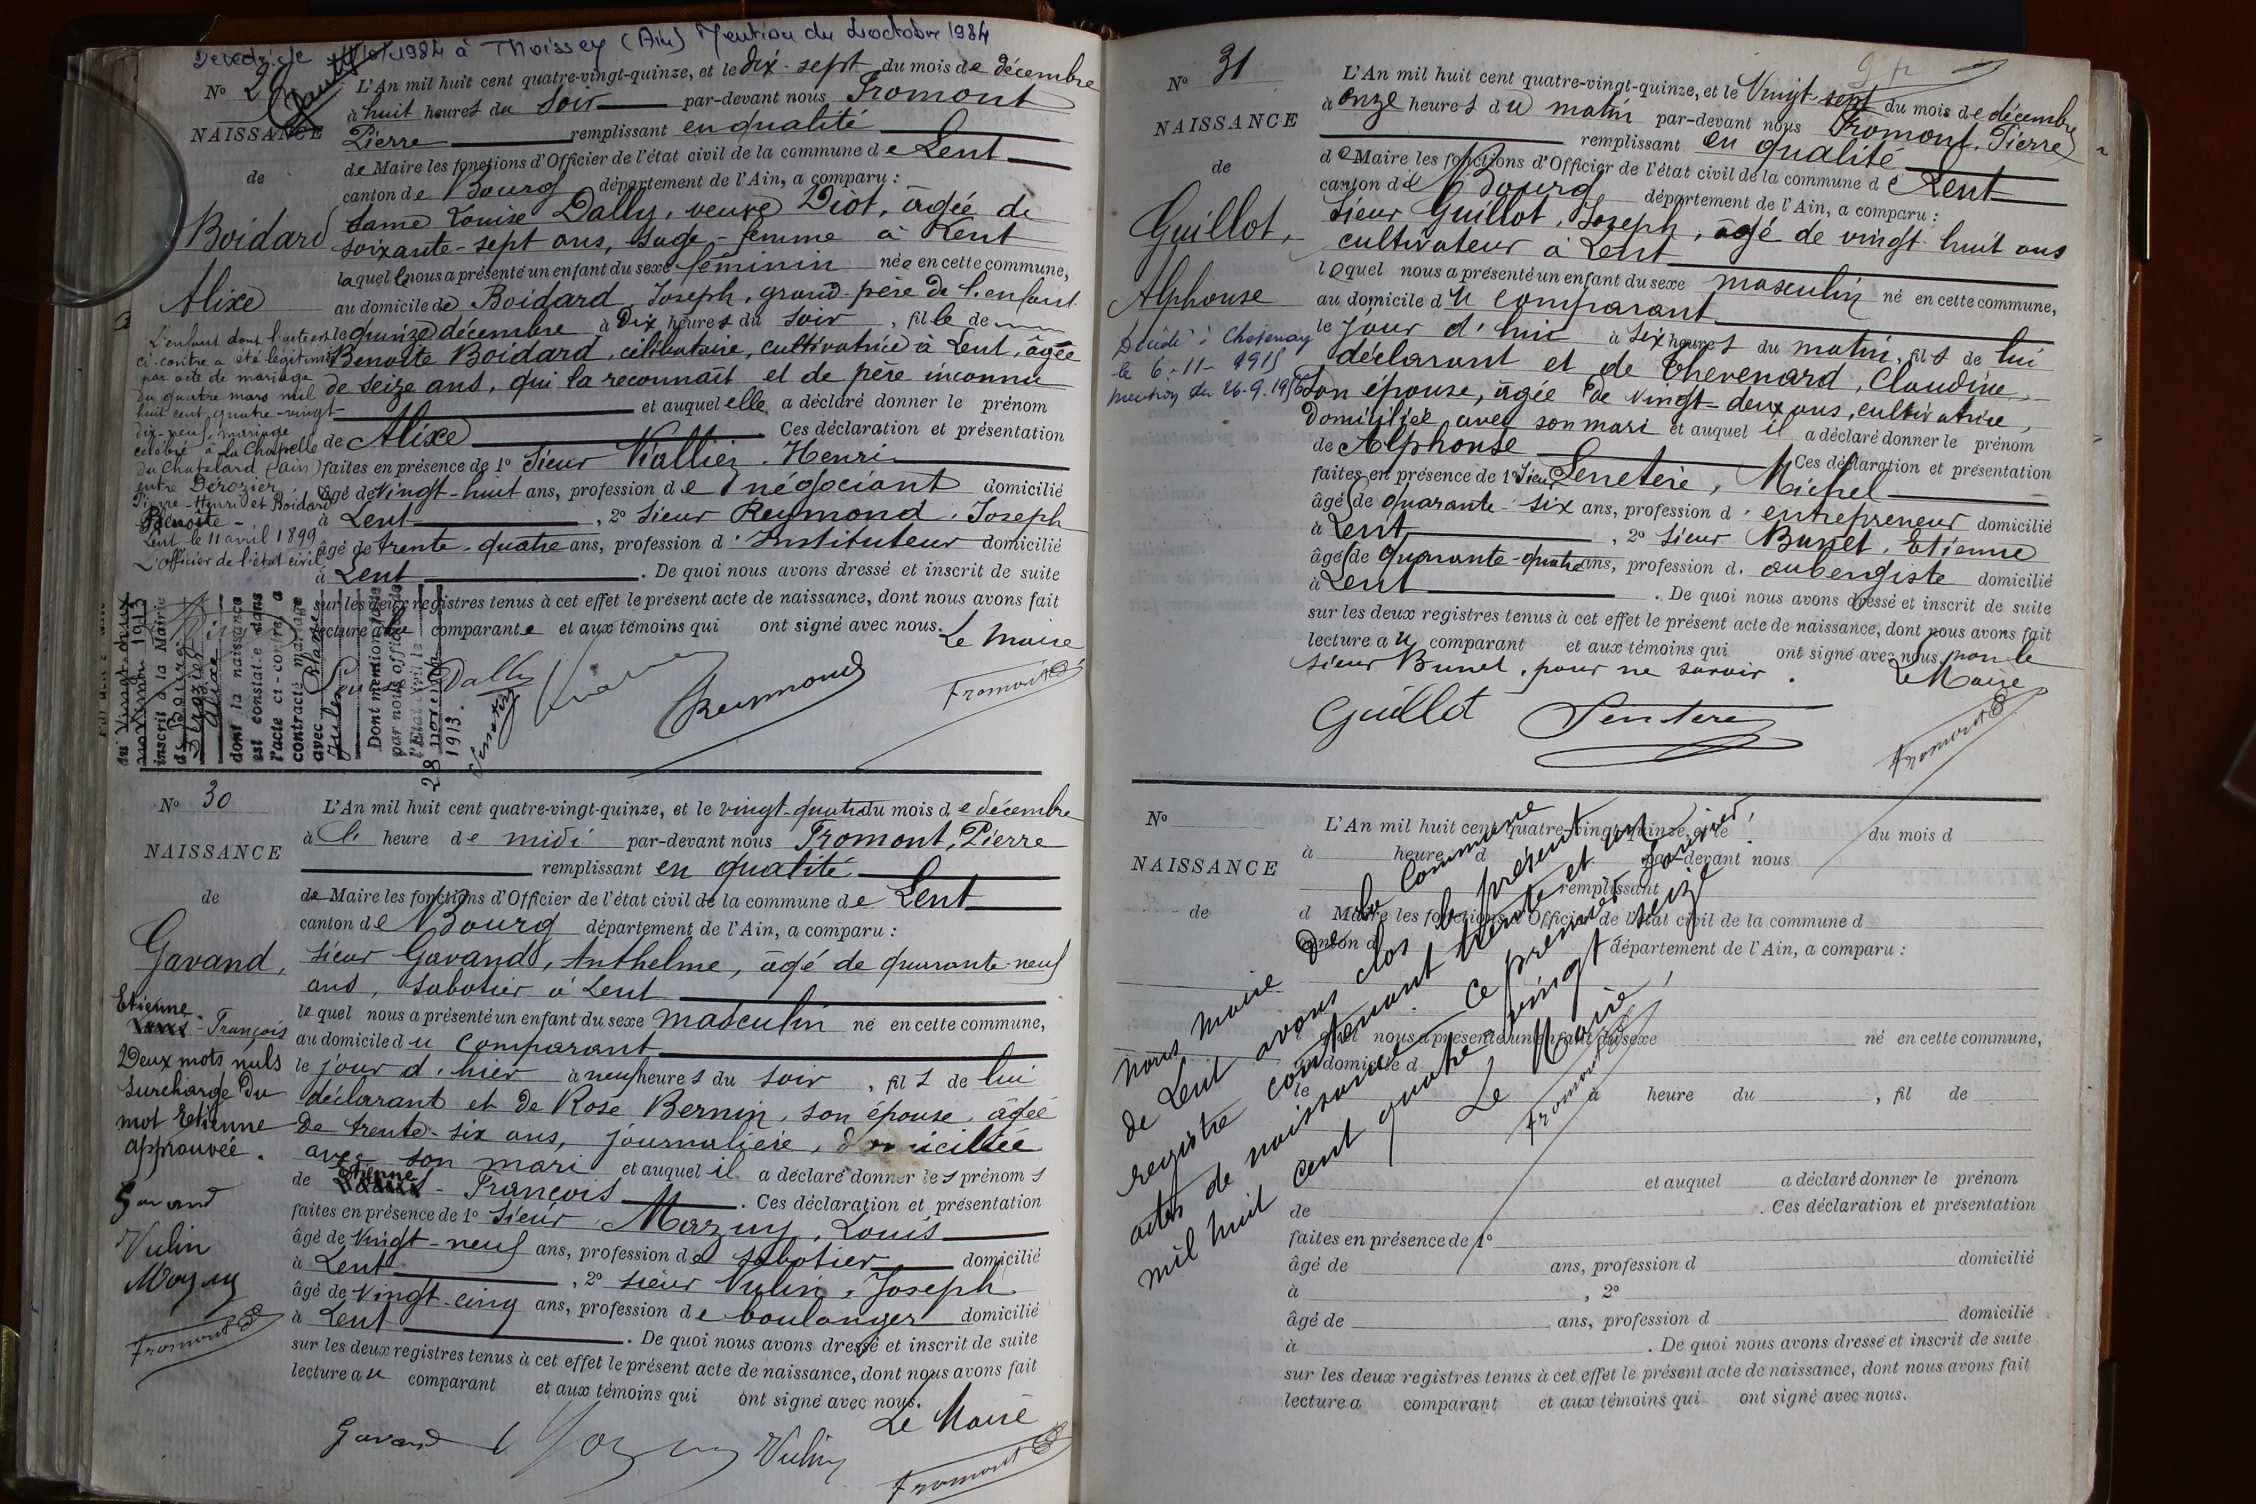 Décédée le 1984 à Thoissey (Ain) Mention du octobre 1984
N° 29
NAISSANCE
de
Boidard
Alixe
L'enfant dont l'acte est
ci-contre a été légitimé
par acte de mariage
du quatre mars mil
huit cent quatre-vingt-
dix-neuf, mariage
célébré à la Chapelle
du Chatelard (ain)
entre Dérozier
Pierre-Henri et Boidard
Benoîte -
Lent le 11 avril 1899
L'officier de l'état civil,
L'An mil huit cent quatre-vingt-quinze, et le dix-sept du mois de décembre
à huit heures du soir par-devant nous Fromont
Pierre remplissant en qualité
de Maire les fonctions d'Officier de l'état civil de la commune de Lent
canton de Bourg département de l'Ain, a comparu :
Dame Louise Dally, veuve Diot, âgée de
soixante-sept ans, sage-femme à Lent
laquelle nous a présenté un enfant du sexe féminin née en cette commune,
au domicile de Boidard, Joseph, grand-père de l'enfant
le quinze décembre à dix heures du soir, fille de
Benoîte Boidard, célibataire, cultivatrice à Lent, âgée
de seize ans, qui la reconnaît et de père inconnu
et auquel elle a déclaré donner le prénom
de Alixe Ces déclaration et présentation
faites en présence de 1° Sieur Viallier, Henri
âgé de vingt-huit ans, profession de négociant domicilié
à Lent, 2° Sieur Reymond, Joseph
âgé de trente-quatre ans, profession d'Instituteur domicilié
à Lent. De quoi nous avons dressé et inscrit de suite
sur les deux registres tenus à cet effet le présent acte de naissance, dont nous avons fait
lecture à la comparante et aux témoins qui ont signé avec nous.
Le Maire
Dally
Reymond
Fromont
du vingt-deux
novembre 1913
inscrit à la Mairie
de Bourg
Dérozier
Alixe
dont la naissance
est constatée dans
l'acte ci-contre, a
contracté mariage
avec
Jules
Dont mention
par nous officier de
l'Etat civil le
28 novembre
1913.
N° 30
NAISSANCE
de
Gavand,
Etienne
-François
Deux mots nuls
surcharge du
mot Etienne
approuvée.
Gavand
Vulin
Mazuy
Fromont
L'An mil huit cent quatre-vingt-quinze, et le vingt-quatre du mois de décembre
à l' heure de midi par-devant nous Fromont, Pierre
remplissant en qualité
de Maire les fonctions d'Officier de l'état civil de la commune de Lent
canton de Bourg département de l'Ain, a comparu :
Sieur Gavand, Anthelme, âgé de quarante-neuf
ans, sabotier à Lent
lequel nous a présenté un enfant du sexe masculin né en cette commune,
au domicile du comparant
le jour d'hier à neuf heures du soir, fils de lui
déclarant et de Rose Bernin, son épouse, âgée
de trente-six ans, journalière, domiciliée
avec son mari et auquel il a déclaré donner les prénoms
de Etienne - François. Ces déclaration et présentation
faites en présence de 1° Sieur Mazuy, Louis
âgé de vingt-neuf ans, profession de sabotier domicilié
à Lent, 2° Sieur Vulin, Joseph
âgé de vingt-cinq ans, profession de boulanger domicilié
à Lent. De quoi nous avons dressé et inscrit de suite
sur les deux registres tenus à cet effet le présent acte de naissance, dont nous avons fait
lecture au comparant et aux témoins qui ont signé avec nous.
Le Maire
Gavand Mazuy Vulin
Fromont
N° 31
NAISSANCE
de
Guillot,
Alphonse
Décédé à Chatenay
le 6-11-1915
L'An mil huit cent quatre-vingt-quinze, et le Vingt-sept du mois de décembre
à onze heures du matin par-devant nous Fromont, Pierre
remplissant en qualité
de Maire les fonctions d'Officier de l'état civil de la commune de Lent
canton de Bourg département de l'Ain, a comparu :
Sieur Guillot, Joseph, âgé de vingt-huit ans
cultivateur à Lent
lequel nous a présenté un enfant du sexe masculin né en cette commune,
au domicile du comparant
le jour d'hui à six heures du matin, fils de lui
déclarant et de Thevenard, Claudine
son épouse, âgée de vingt-deux ans, cultivatrice,
domiciliée avec son mari et auquel il a déclaré donner le prénom
de Alphonse Ces déclaration et présentation
faites en présence de 1° Sieur Senetère, Michel
âgé de quarante-six ans, profession d'entrepreneur domicilié
à Lent, 2° Sieur Bunet, Etienne
âgé de quarante-quatre ans, profession d'aubergiste domicilié
à Lent. De quoi nous avons dressé et inscrit de suite
sur les deux registres tenus à cet effet le présent acte de naissance, dont nous avons fait
lecture au comparant et aux témoins qui ont signé avec nous, non le
sieur Bunet, pour ne savoir.
Le Maire
Guillot
Fromont
N°
NAISSANCE
de
L'An mil huit cent quatre-vingt-quinze, et le du mois d
à heure d par-devant nous
remplissant
d Maire les fonctions d'Officier de l'état civil de la commune d
canton d département de l'Ain, a comparu :
quel nous a présenté un enfant du sexe né en cette commune,
au domicile d
le à heure du , fil de
et auquel a déclaré donner le prénom
de . Ces déclaration et présentation
faites en présence de 1°
âgé de ans, profession d domicilié
à , 2°
âgé de ans, profession d domicilié
à . De quoi nous avons dressé et inscrit de suite
sur les deux registres tenus à cet effet le présent acte de naissance, dont nous avons fait
lecture a comparant et aux témoins qui ont signé avec nous.
Nous maire de la commune
de Lent avons clos le présent
registre contenant trente et un
actes de naissance ce premier janvier
mil huit cent quatre-vingt seize
Le Maire,
Fromont